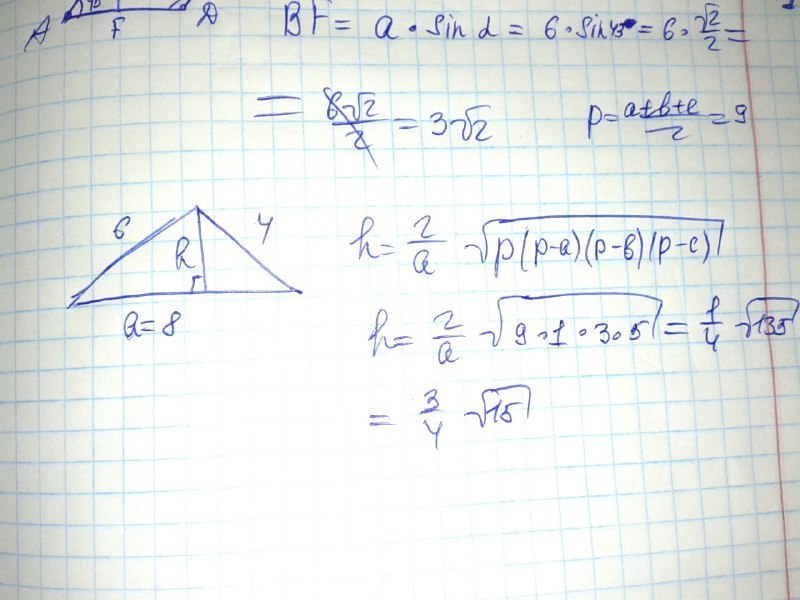 A F D 45° BF = a · sin α = 6 · sin 45° = 6 · √2/2 =
= 6√2/2 = 3√2 p = a+b+c/2 = 9
6 4 h h = 2/a √p(p-a)(p-b)(p-c)
a = 8 h = 2/a √9·1·3·5 = 1/4 √135
= 3/4 √15